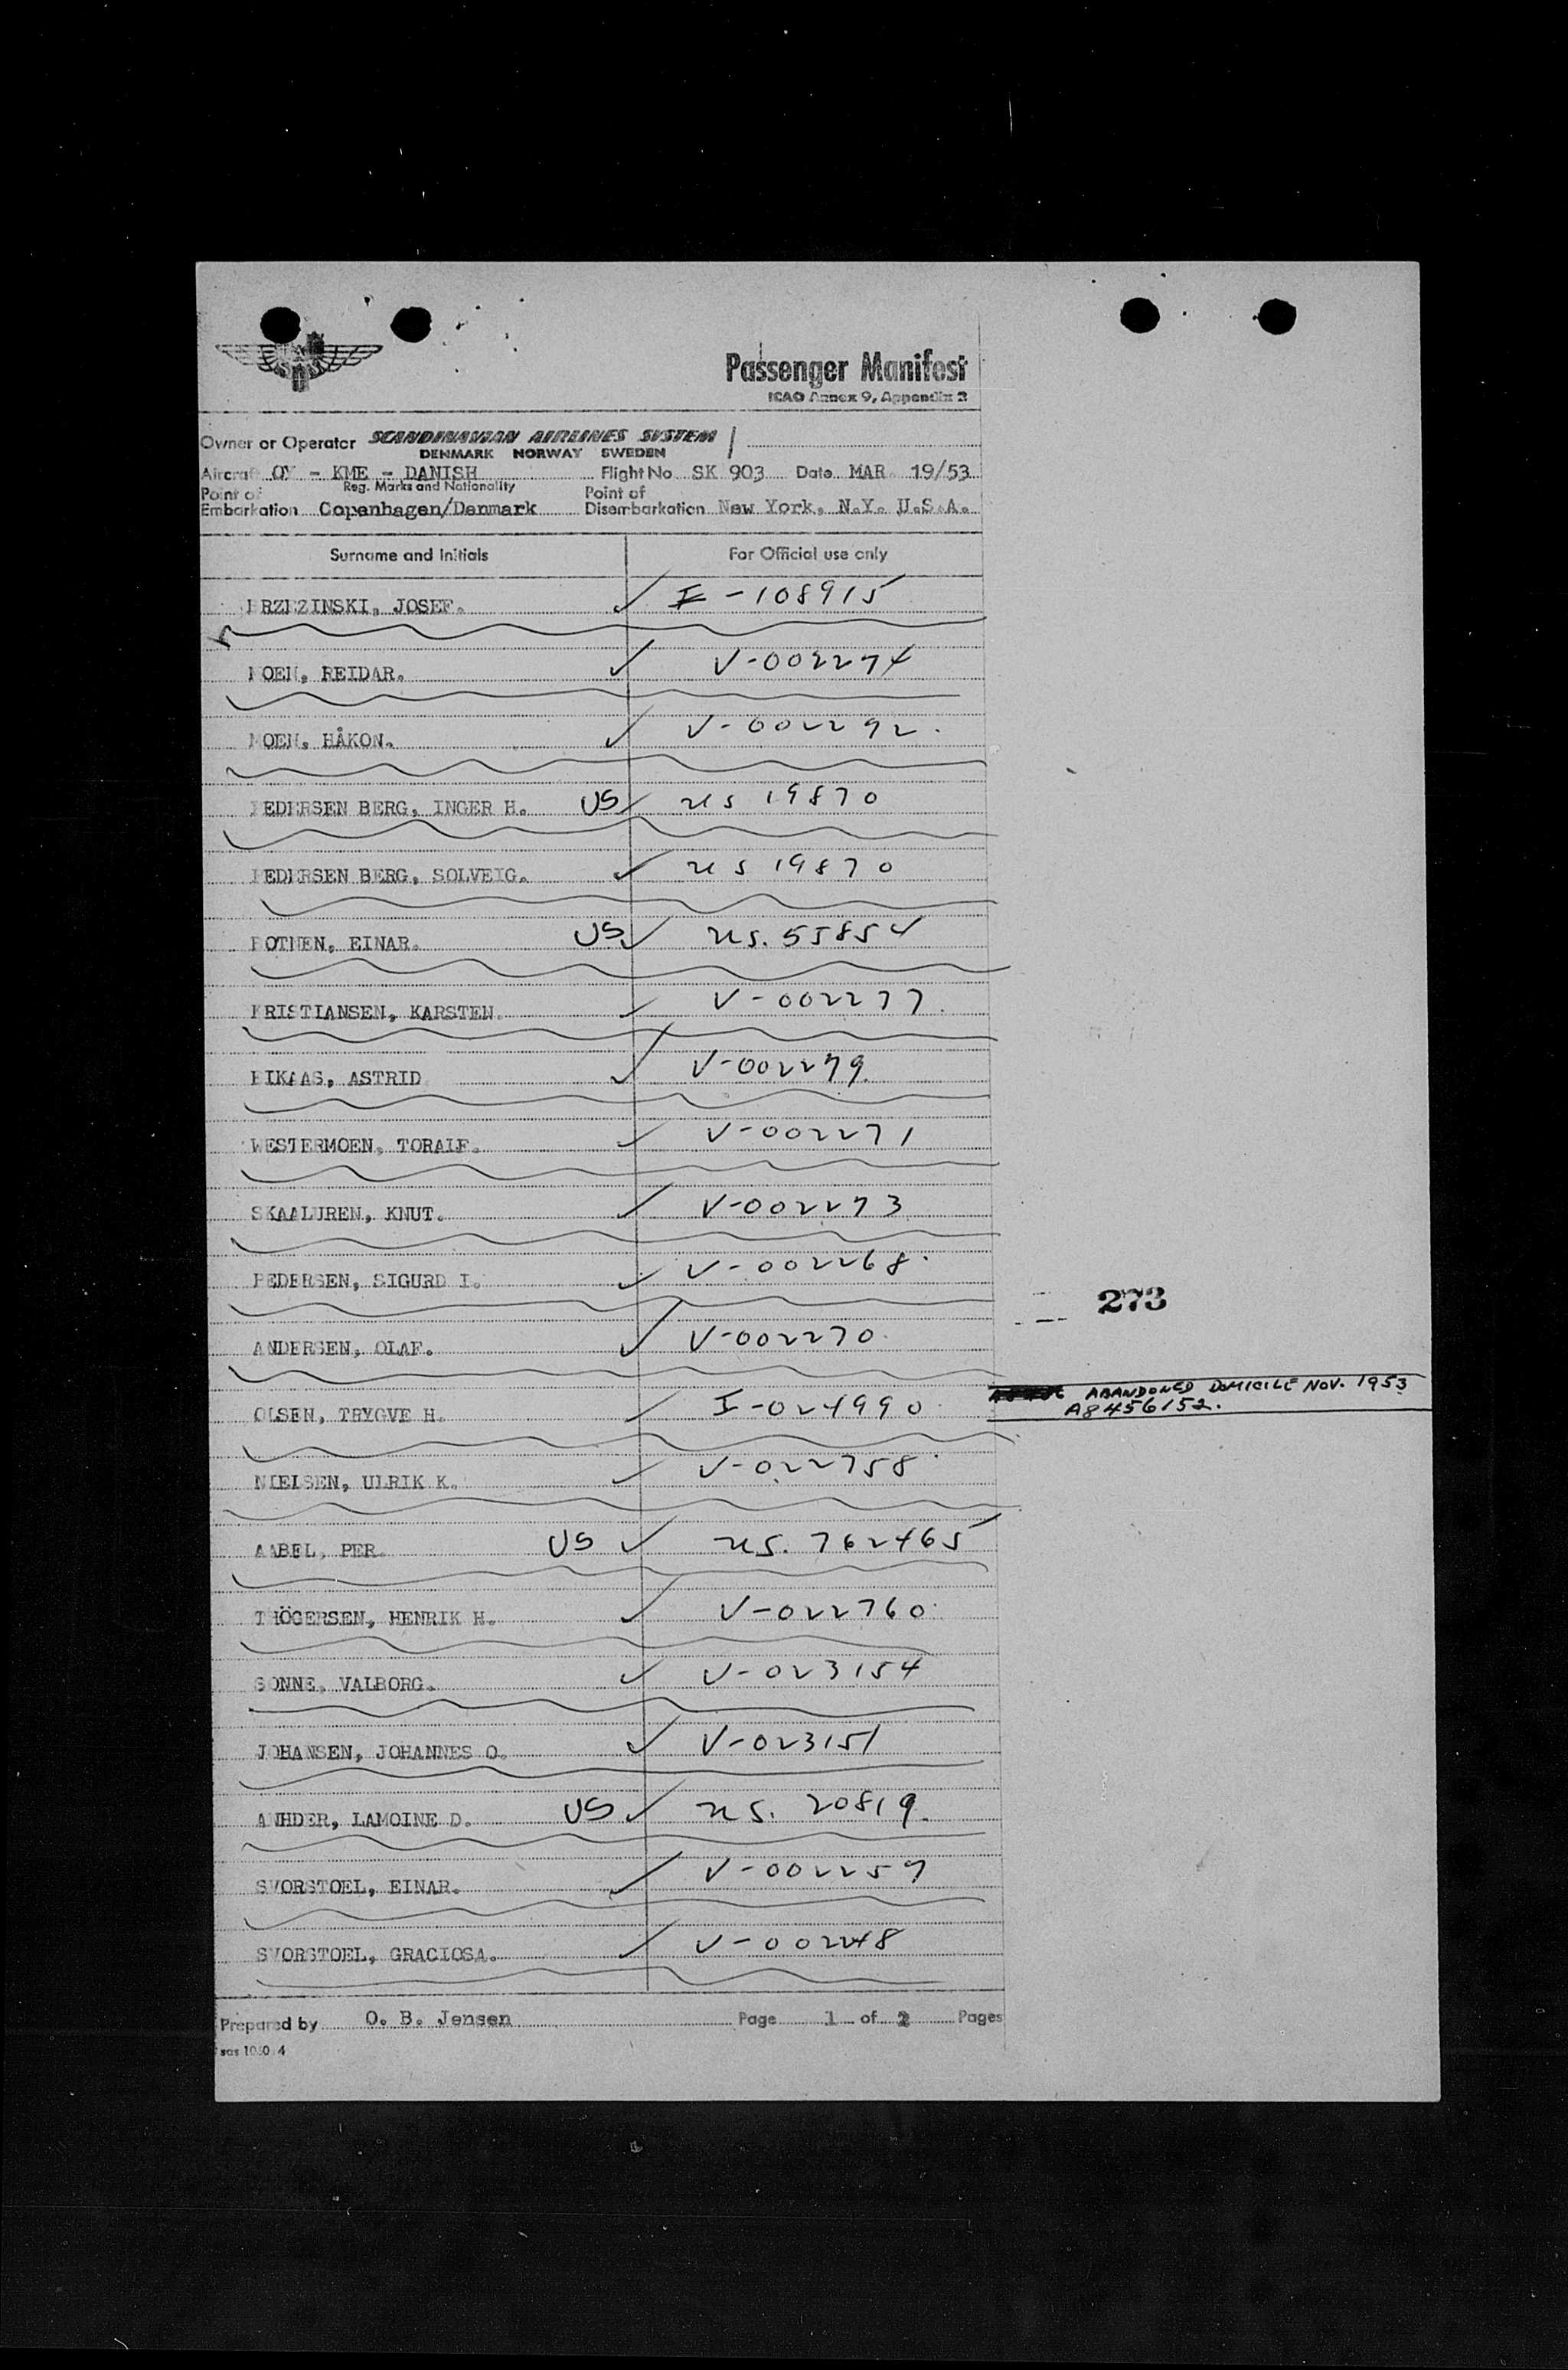 Passenger Manifest
ICAO Annex 9, Appendix 2
Owner or Operator SCANDINAVIAN AIRLINES SYSTEM
DENMARK NORWAY SWEDEN
Aircraft OY - KME - DANISH Flight No. SK 903 Date MAR. 19/53
Reg. Marks and Nationality
Point of Embarkation Copenhagen/Denmark Point of Disembarkation New York, N.Y. U.S.A.
Surname and Initials For Official use only
BRZEZINSKI, JOSEF. I-108915
MOEN, REIDAR. V-002274
MOEN, HÅKON. V-002292
PEDERSEN BERG, INGER H. US US 19870
PEDERSEN BERG, SOLVEIG. US 19870
BOTNEN, EINAR. US US. 55854
KRISTIANSEN, KARSTEN. V-002277
EIKAAS, ASTRID V-002279
WESTERMOEN, TORALF. V-002271
SKAALUREN, KNUT. V-002273
PEDERSEN, SIGURD I. V-002268
273
ANDERSEN, OLAF. V-002270
OLSEN, TRYGVE H. I-024990 ABANDONED DOMICILE NOV. 1953
A8456152.
NIELSEN, ULRIK K. V-022758
AABEL, PER. US US. 762465
THÖGERSEN, HENRIK H. V-022760
SONNE, VALBORG. V-023154
JOHANSEN, JOHANNES O. V-023151
ANHDER, LAMOINE D. US US. 20819
SVORSTOEL, EINAR. V-002257
SVORSTOEL, GRACIOSA. V-002248
Prepared by O. B. Jensen Page 1 of 2 Pages